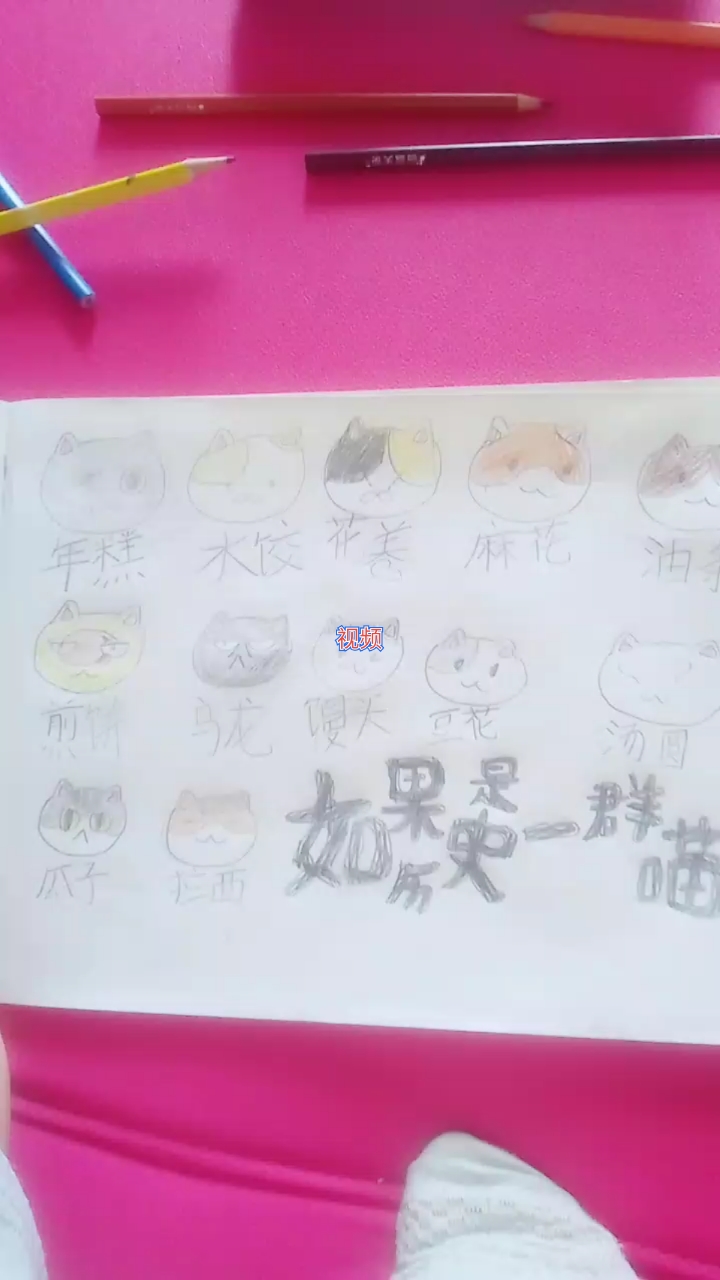 年糕 水饺 花卷 麻花 油条
煎饼 乌龙 馒头 豆花 汤圆
视频
瓜子 拉西
如果历史是一群喵